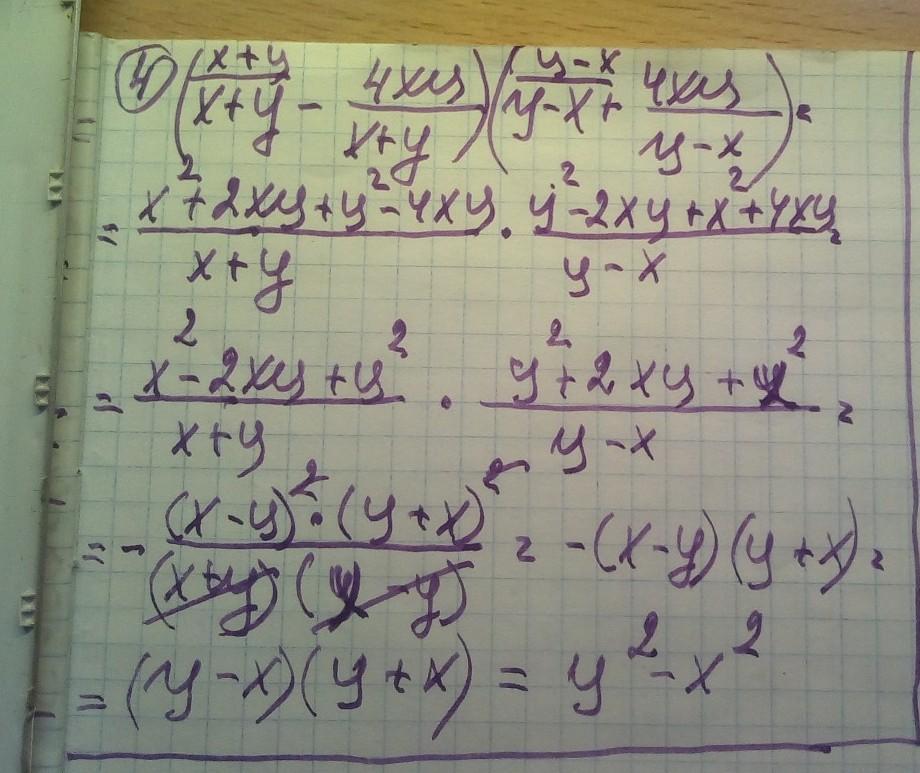 ④ (x+y^{x+y} - 4xy/(x+y)) (y-x^{y-x} + 4xy/(y-x)) =
= (x²+2xy+y²-4xy)/(x+y) · (y²-2xy+x²+4xy)/(y-x) =
= (x²-2xy+y²)/(x+y) · (y²+2xy+x²)/(y-x) =
= - (x-y)²·(y+x)²/((x+y)(x-y)) = -(x-y)(y+x) =
= (y-x)(y+x) = y²-x²